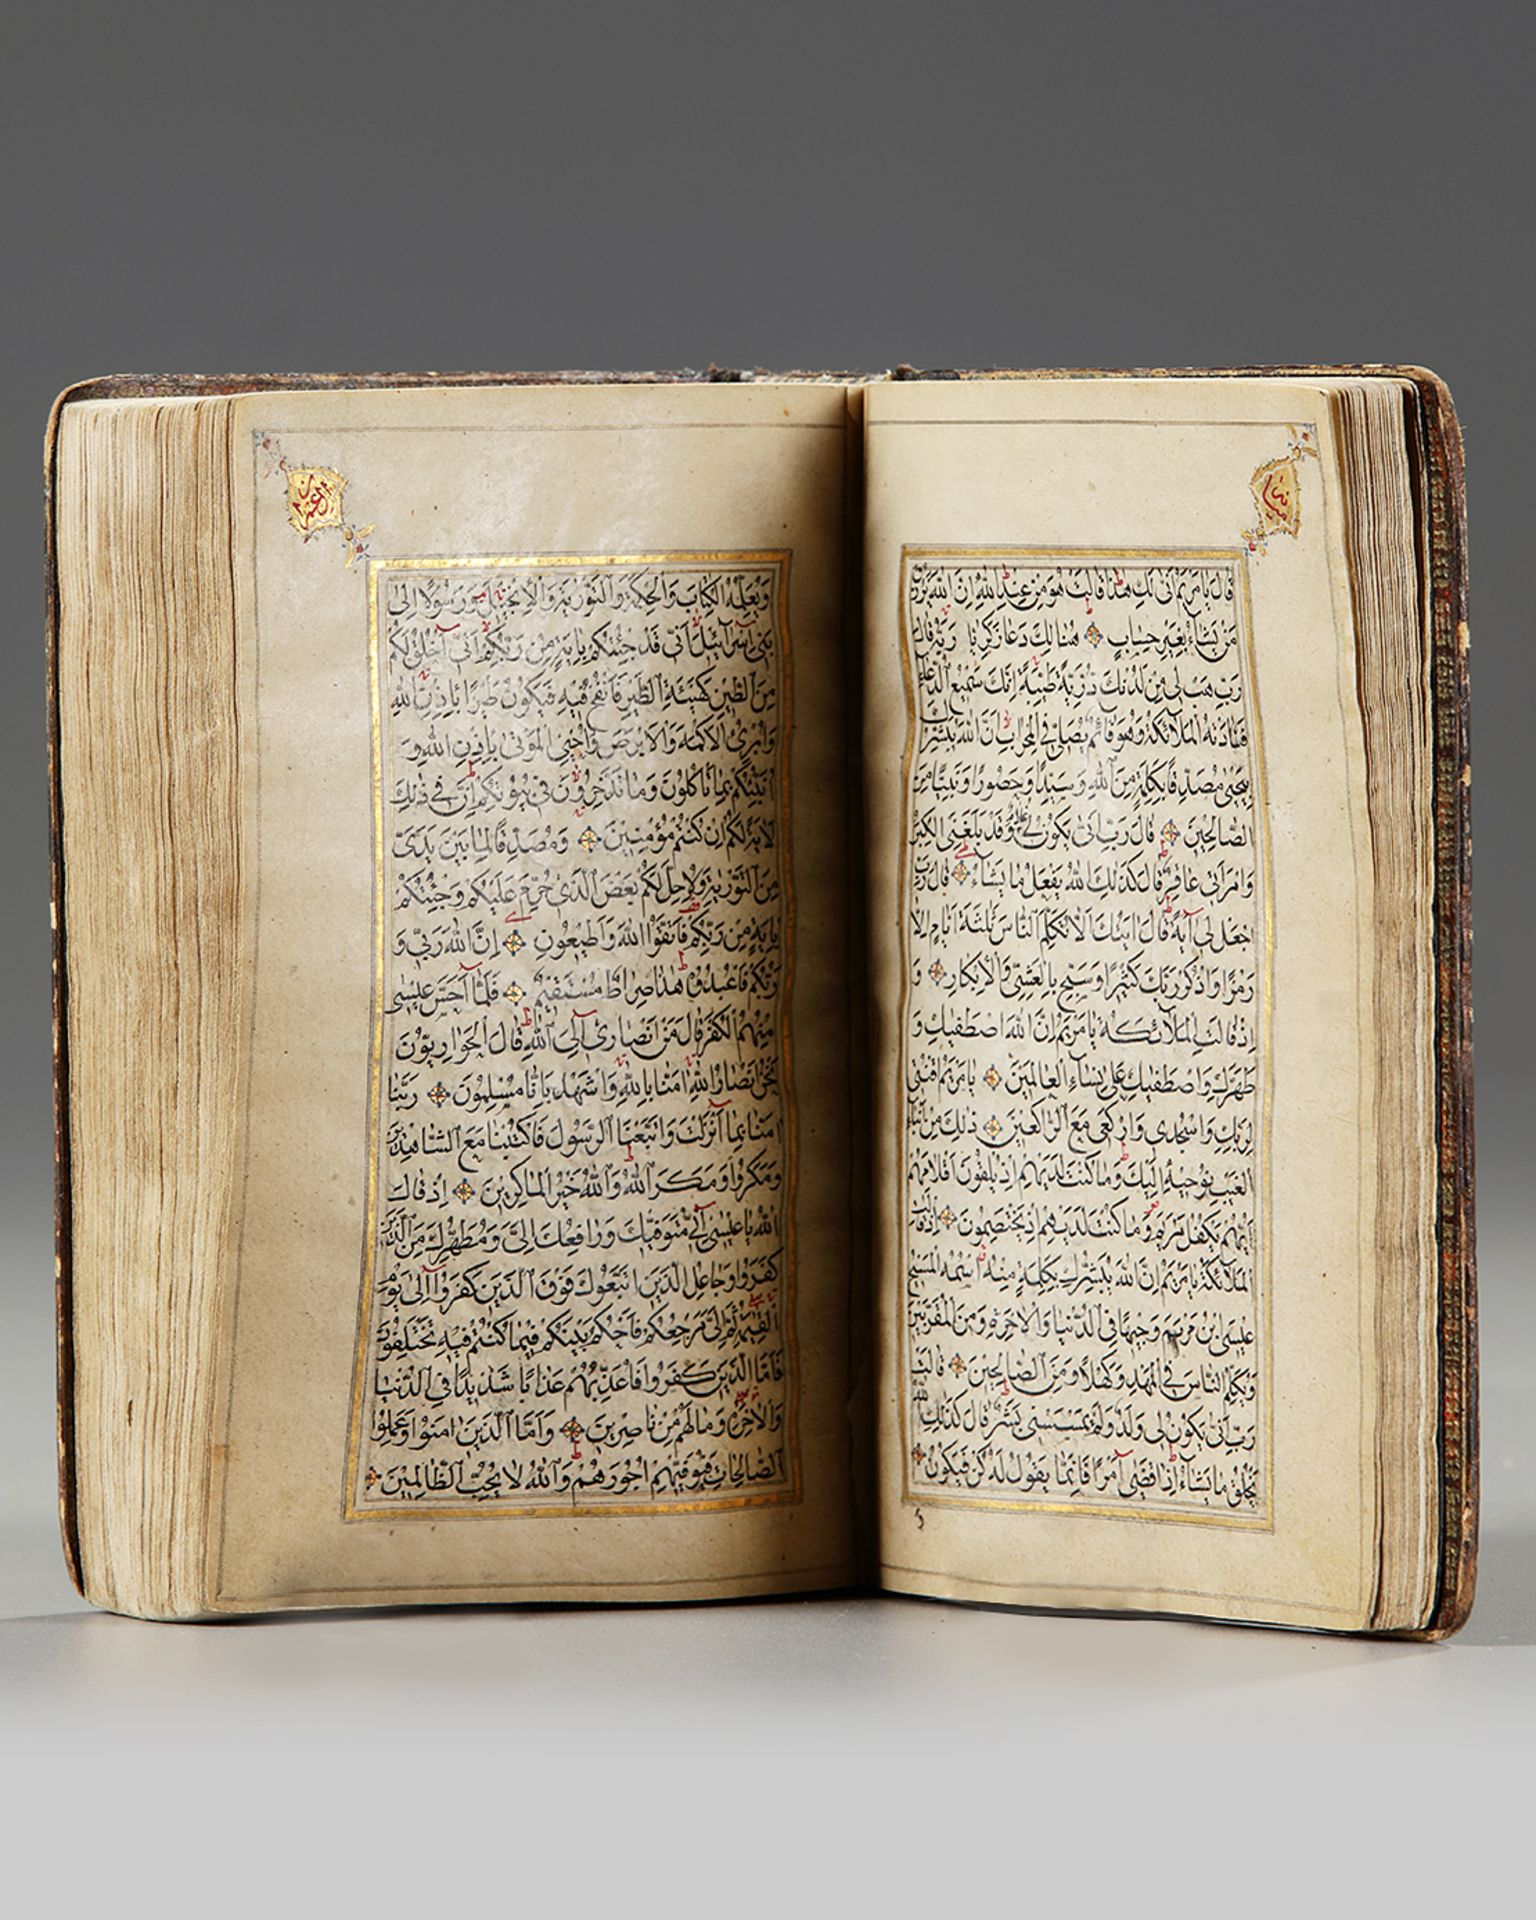 قَالَ يَا مَرْيَمُ اَنّٰى لَكِ هٰذَا قَالَتْ هُوَ مِنْ عِنْدِ اللّٰهِ اِنَّ اللّٰهَ يَرْزُقُ
مَنْ يَشَاءُ بِغَيْرِ حِسَابٍ هُنَالِكَ دَعَا زَكَرِيَّا رَبَّهُ قَالَ
رَبِّ هَبْ لِي مِنْ لَدُنْكَ ذُرِّيَّةً طَيِّبَةً اِنَّكَ سَمِيعُ الدُّعَاءِ
فَنَادَتْهُ الْمَلَائِكَةُ وَهُوَ قَائِمٌ يُصَلِّي فِي الْمِحْرَابِ اَنَّ اللّٰهَ يُبَشِّرُكَ
بِيَحْيٰى مُصَدِّقًا بِكَلِمَةٍ مِنَ اللّٰهِ وَسَيِّدًا وَحَصُورًا وَنَبِيًّا مِنَ
الصَّالِحِينَ قَالَ رَبِّ اَنّٰى يَكُونُ لِي غُلَامٌ وَقَدْ بَلَغَنِيَ الْكِبَرُ
وَامْرَاَتِي عَاقِرٌ قَالَ كَذٰلِكَ اللّٰهُ يَفْعَلُ مَا يَشَاءُ قَالَ رَبِّ
اجْعَلْ لِي آيَةً قَالَ آيَتُكَ اَلَّا تُكَلِّمَ النَّاسَ ثَلٰثَةَ اَيَّامٍ اِلَّا
رَمْزًا وَاذْكُرْ رَبَّكَ كَثِيرًا وَسَبِّحْ بِالْعَشِيِّ وَالْاِبْكَارِ وَ
اِذْ قَالَتِ الْمَلَائِكَةُ يَا مَرْيَمُ اِنَّ اللّٰهَ اصْطَفٰيكِ وَ
طَهَّرَكِ وَاصْطَفٰيكِ عَلٰى نِسَاءِ الْعَالَمِينَ يَا مَرْيَمُ اقْنُتِي
لِرَبِّكِ وَاسْجُدِي وَارْكَعِي مَعَ الرَّاكِعِينَ ذٰلِكَ مِنْ اَنْبَاءِ
الْغَيْبِ نُوحِيهِ اِلَيْكَ وَمَا كُنْتَ لَدَيْهِمْ اِذْ يُلْقُونَ اَقْلَامَهُمْ
اَيُّهُمْ يَكْفُلُ مَرْيَمَ وَمَا كُنْتَ لَدَيْهِمْ اِذْ يَخْتَصِمُونَ اِذْ قَالَتِ
الْمَلَائِكَةُ يَا مَرْيَمُ اِنَّ اللّٰهَ يُبَشِّرُكِ بِكَلِمَةٍ مِنْهُ اسْمُهُ الْمَسِيحُ
عِيسَى بْنُ مَرْيَمَ وَجِيهًا فِي الدُّنْيَا وَالْاٰخِرَةِ وَمِنَ الْمُقَرَّبِينَ
وَيُكَلِّمُ النَّاسَ فِي الْمَهْدِ وَكَهْلًا وَمِنَ الصَّالِحِينَ قَالَتْ
رَبِّ اَنّٰى يَكُونُ لِي وَلَدٌ وَلَمْ يَمْسَسْنِي بَشَرٌ قَالَ كَذٰلِكِ اللّٰهُ
يَخْلُقُ مَا يَشَاءُ اِذَا قَضٰى اَمْرًا فَاِنَّمَا يَقُولُ لَهُ كُنْ فَيَكُونُ
آل عمران
وَيُعَلِّمُهُ الْكِتَابَ وَالْحِكْمَةَ وَالتَّوْرٰيةَ وَالْاِنْجِيلَ وَرَسُولًا اِلٰى
بَنِي اِسْرَائِيلَ اَنِّي قَدْ جِئْتُكُمْ بِاٰيَةٍ مِنْ رَبِّكُمْ اَنِّي اَخْلُقُ لَكُمْ
مِنَ الطِّينِ كَهَيْئَةِ الطَّيْرِ فَاَنْفُخُ فِيهِ فَيَكُونُ طَيْرًا بِاِذْنِ اللّٰهِ
وَاُبْرِئُ الْاَكْمَهَ وَالْاَبْرَصَ وَاُحْيِي الْمَوْتٰى بِاِذْنِ اللّٰهِ وَ
اُنَبِّئُكُمْ بِمَا تَاْكُلُونَ وَمَا تَدَّخِرُونَ فِي بُيُوتِكُمْ اِنَّ فِي ذٰلِكَ
لَاٰيَةً لَكُمْ اِنْ كُنْتُمْ مُؤْمِنِينَ وَمُصَدِّقًا لِمَا بَيْنَ يَدَيَّ
مِنَ التَّوْرٰيةِ وَلِاُحِلَّ لَكُمْ بَعْضَ الَّذِي حُرِّمَ عَلَيْكُمْ وَجِئْتُكُمْ
بِاٰيَةٍ مِنْ رَبِّكُمْ فَاتَّقُوا اللّٰهَ وَاَطِيعُونِ اِنَّ اللّٰهَ رَبِّي وَ
رَبُّكُمْ فَاعْبُدُوهُ هٰذَا صِرَاطٌ مُسْتَقِيمٌ فَلَمَّا اَحَسَّ عِيسٰى
مِنْهُمُ الْكُفْرَ قَالَ مَنْ اَنْصَارِي اِلَى اللّٰهِ قَالَ الْحَوَارِيُّونَ
نَحْنُ اَنْصَارُ اللّٰهِ اٰمَنَّا بِاللّٰهِ وَاشْهَدْ بِاَنَّا مُسْلِمُونَ رَبَّنَا
اٰمَنَّا بِمَا اَنْزَلْتَ وَاتَّبَعْنَا الرَّسُولَ فَاكْتُبْنَا مَعَ الشَّاهِدِينَ
وَمَكَرُوا وَمَكَرَ اللّٰهُ وَاللّٰهُ خَيْرُ الْمَاكِرِينَ اِذْ قَالَ
اللّٰهُ يَا عِيسٰى اِنِّي مُتَوَفِّيكَ وَرَافِعُكَ اِلَيَّ وَمُطَهِّرُكَ مِنَ الَّذِينَ
كَفَرُوا وَجَاعِلُ الَّذِينَ اتَّبَعُوكَ فَوْقَ الَّذِينَ كَفَرُوا اِلٰى يَوْمِ
الْقِيٰمَةِ ثُمَّ اِلَيَّ مَرْجِعُكُمْ فَاَحْكُمُ بَيْنَكُمْ فِيمَا كُنْتُمْ فِيهِ تَخْتَلِفُونَ
فَاَمَّا الَّذِينَ كَفَرُوا فَاُعَذِّبُهُمْ عَذَابًا شَدِيدًا فِي الدُّنْيَا
وَالْاٰخِرَةِ وَمَا لَهُمْ مِنْ نَاصِرِينَ وَاَمَّا الَّذِينَ اٰمَنُوا وَعَمِلُوا
الصَّالِحَاتِ فَيُوَفِّيهِمْ اُجُورَهُمْ وَاللّٰهُ لَا يُحِبُّ الظَّالِمِينَ